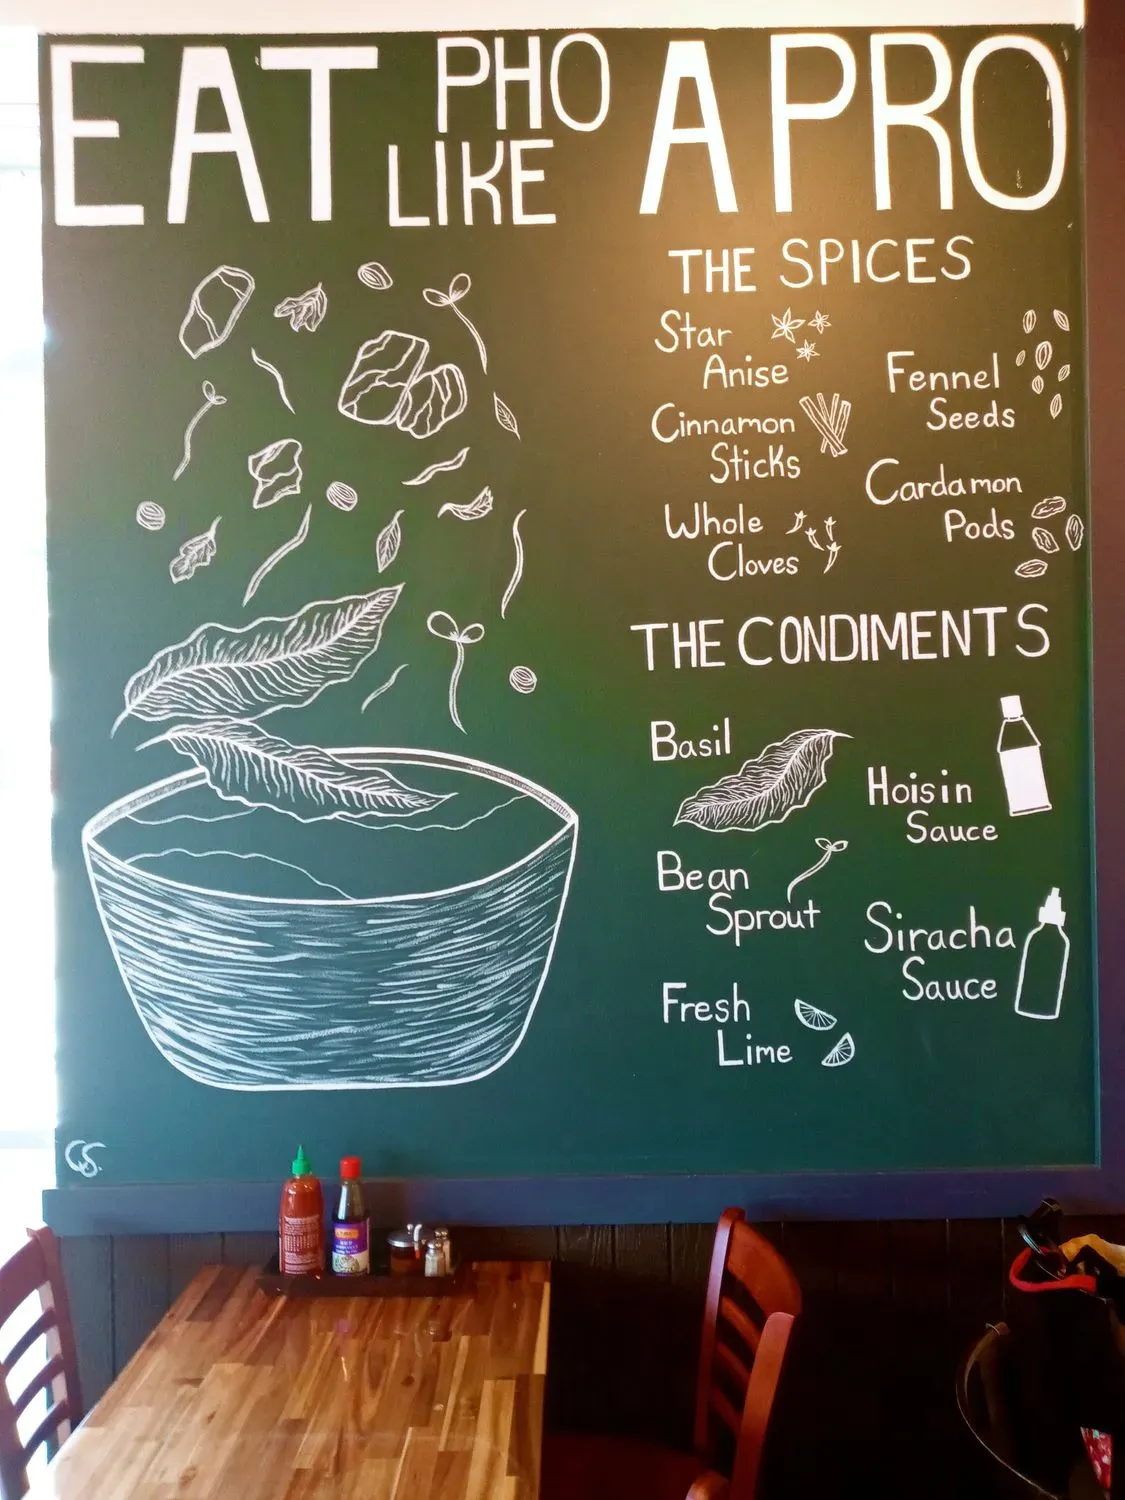 EAT PHO LIKE A PRO
THE SPICES
Star
Anise
Cinnamon
Sticks
Whole
Cloves
Fennel
Seeds
Cardamon
Pods
THE CONDIMENTS
Basil
Bean
Sprout
Fresh
Lime
Hoisin
Sauce
Siracha
Sauce